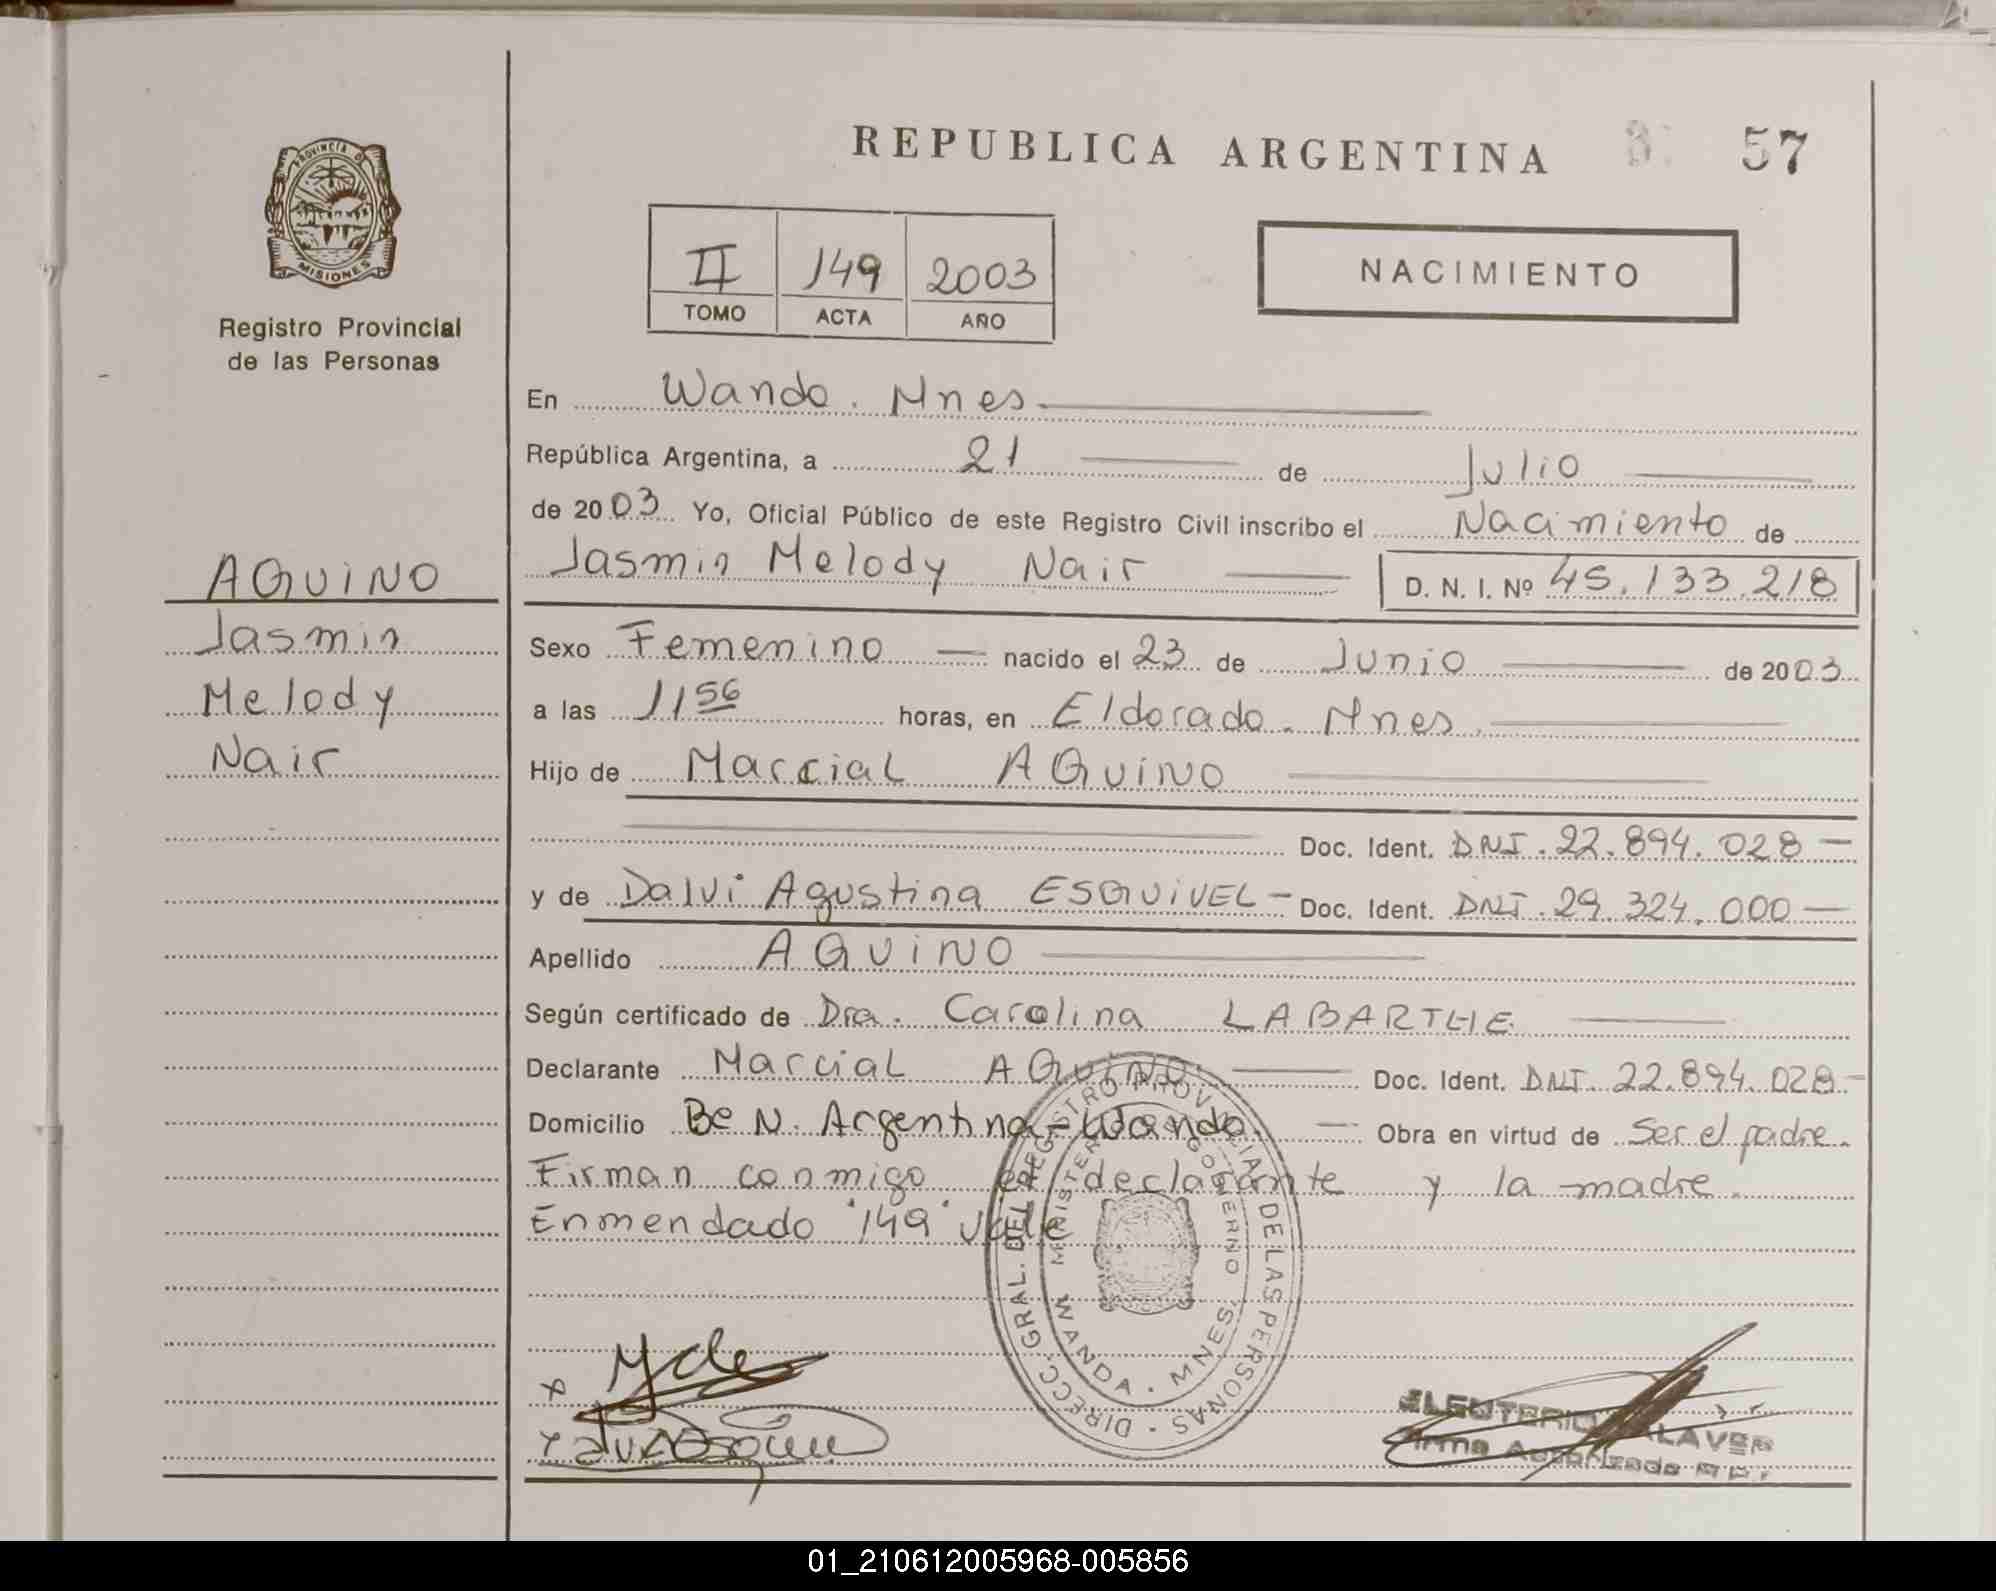 REPUBLICA ARGENTINA 57
PROVINCIA DE
MISIONES
Registro Provincial
de las Personas
II 149 2003
TOMO ACTA AÑO
NACIMIENTO
En Wanda. Mnes
República Argentina, a 21 de Julio
de 2003 Yo, Oficial Público de este Registro Civil inscribo el Nacimiento de
Jasmin Melody Nair D. N. I. Nº 45.133.218
AQUINO
Jasmin
Melody
Nair
Sexo Femenino nacido el 23 de Junio de 2003
a las 11 56 horas, en Eldorado. Mnes.
Hijo de Marcial AQUINO
Doc. Ident. DNI. 22.894.028
y de Dalvi Agustina ESQUIVEL Doc. Ident. DNI. 29.324.000
Apellido AQUINO
Según certificado de Dra. Carolina LABARTHE
Declarante Marcial AQUINO Doc. Ident. DNI. 22.894.028
Domicilio Be N. Argentina - Wanda. Obra en virtud de Ser el padre.
Firman conmigo el declarante y la madre.
Enmendado "149" vale
DIRECC. GRAL. DEL REGISTRO PROVINCIAL DE LAS PERSONAS
MINISTERIO DE GOBIERNO
WANDA - MNES.
ELEUTERIO
Firma Autorizada
01_210612005968-005856